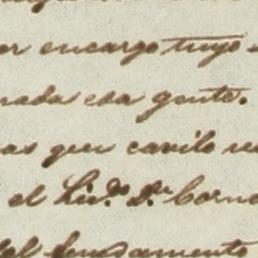 or encargo tuyo
nada esa gente.
as que cavilo
el Liv.do D.r Corne
del fundamento